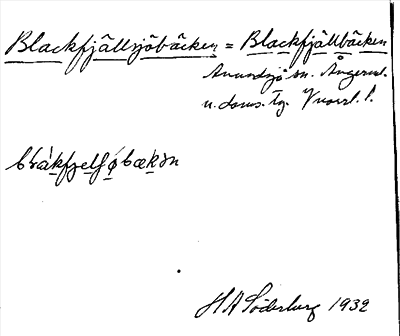 Blackfjällsjöbäcken = Blackfjällbäcken
Anundsjö sn. Ångerml.
u. doms. Tg.
blàkfjelʃøbækən
H A Söderberg 1932